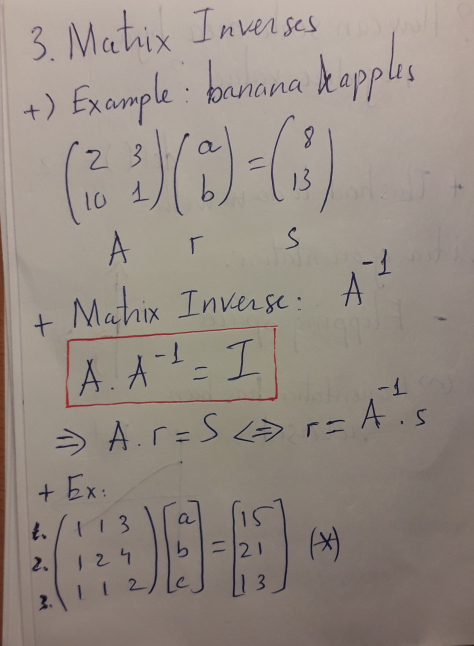 3. Matrix Inverses
+) Example: banana & apples
(2 3
10 1) (a
b) = (8
13)
A r s
+ Matrix Inverse: A⁻¹
A . A⁻¹ = I
⇒ A . r = s ⇔ r = A⁻¹ . s
+ Ex:
1. (1 1 3) [a] = [15] (*)
2. (1 2 4) [b] = [21]
3. (1 1 2) [c] = [13]